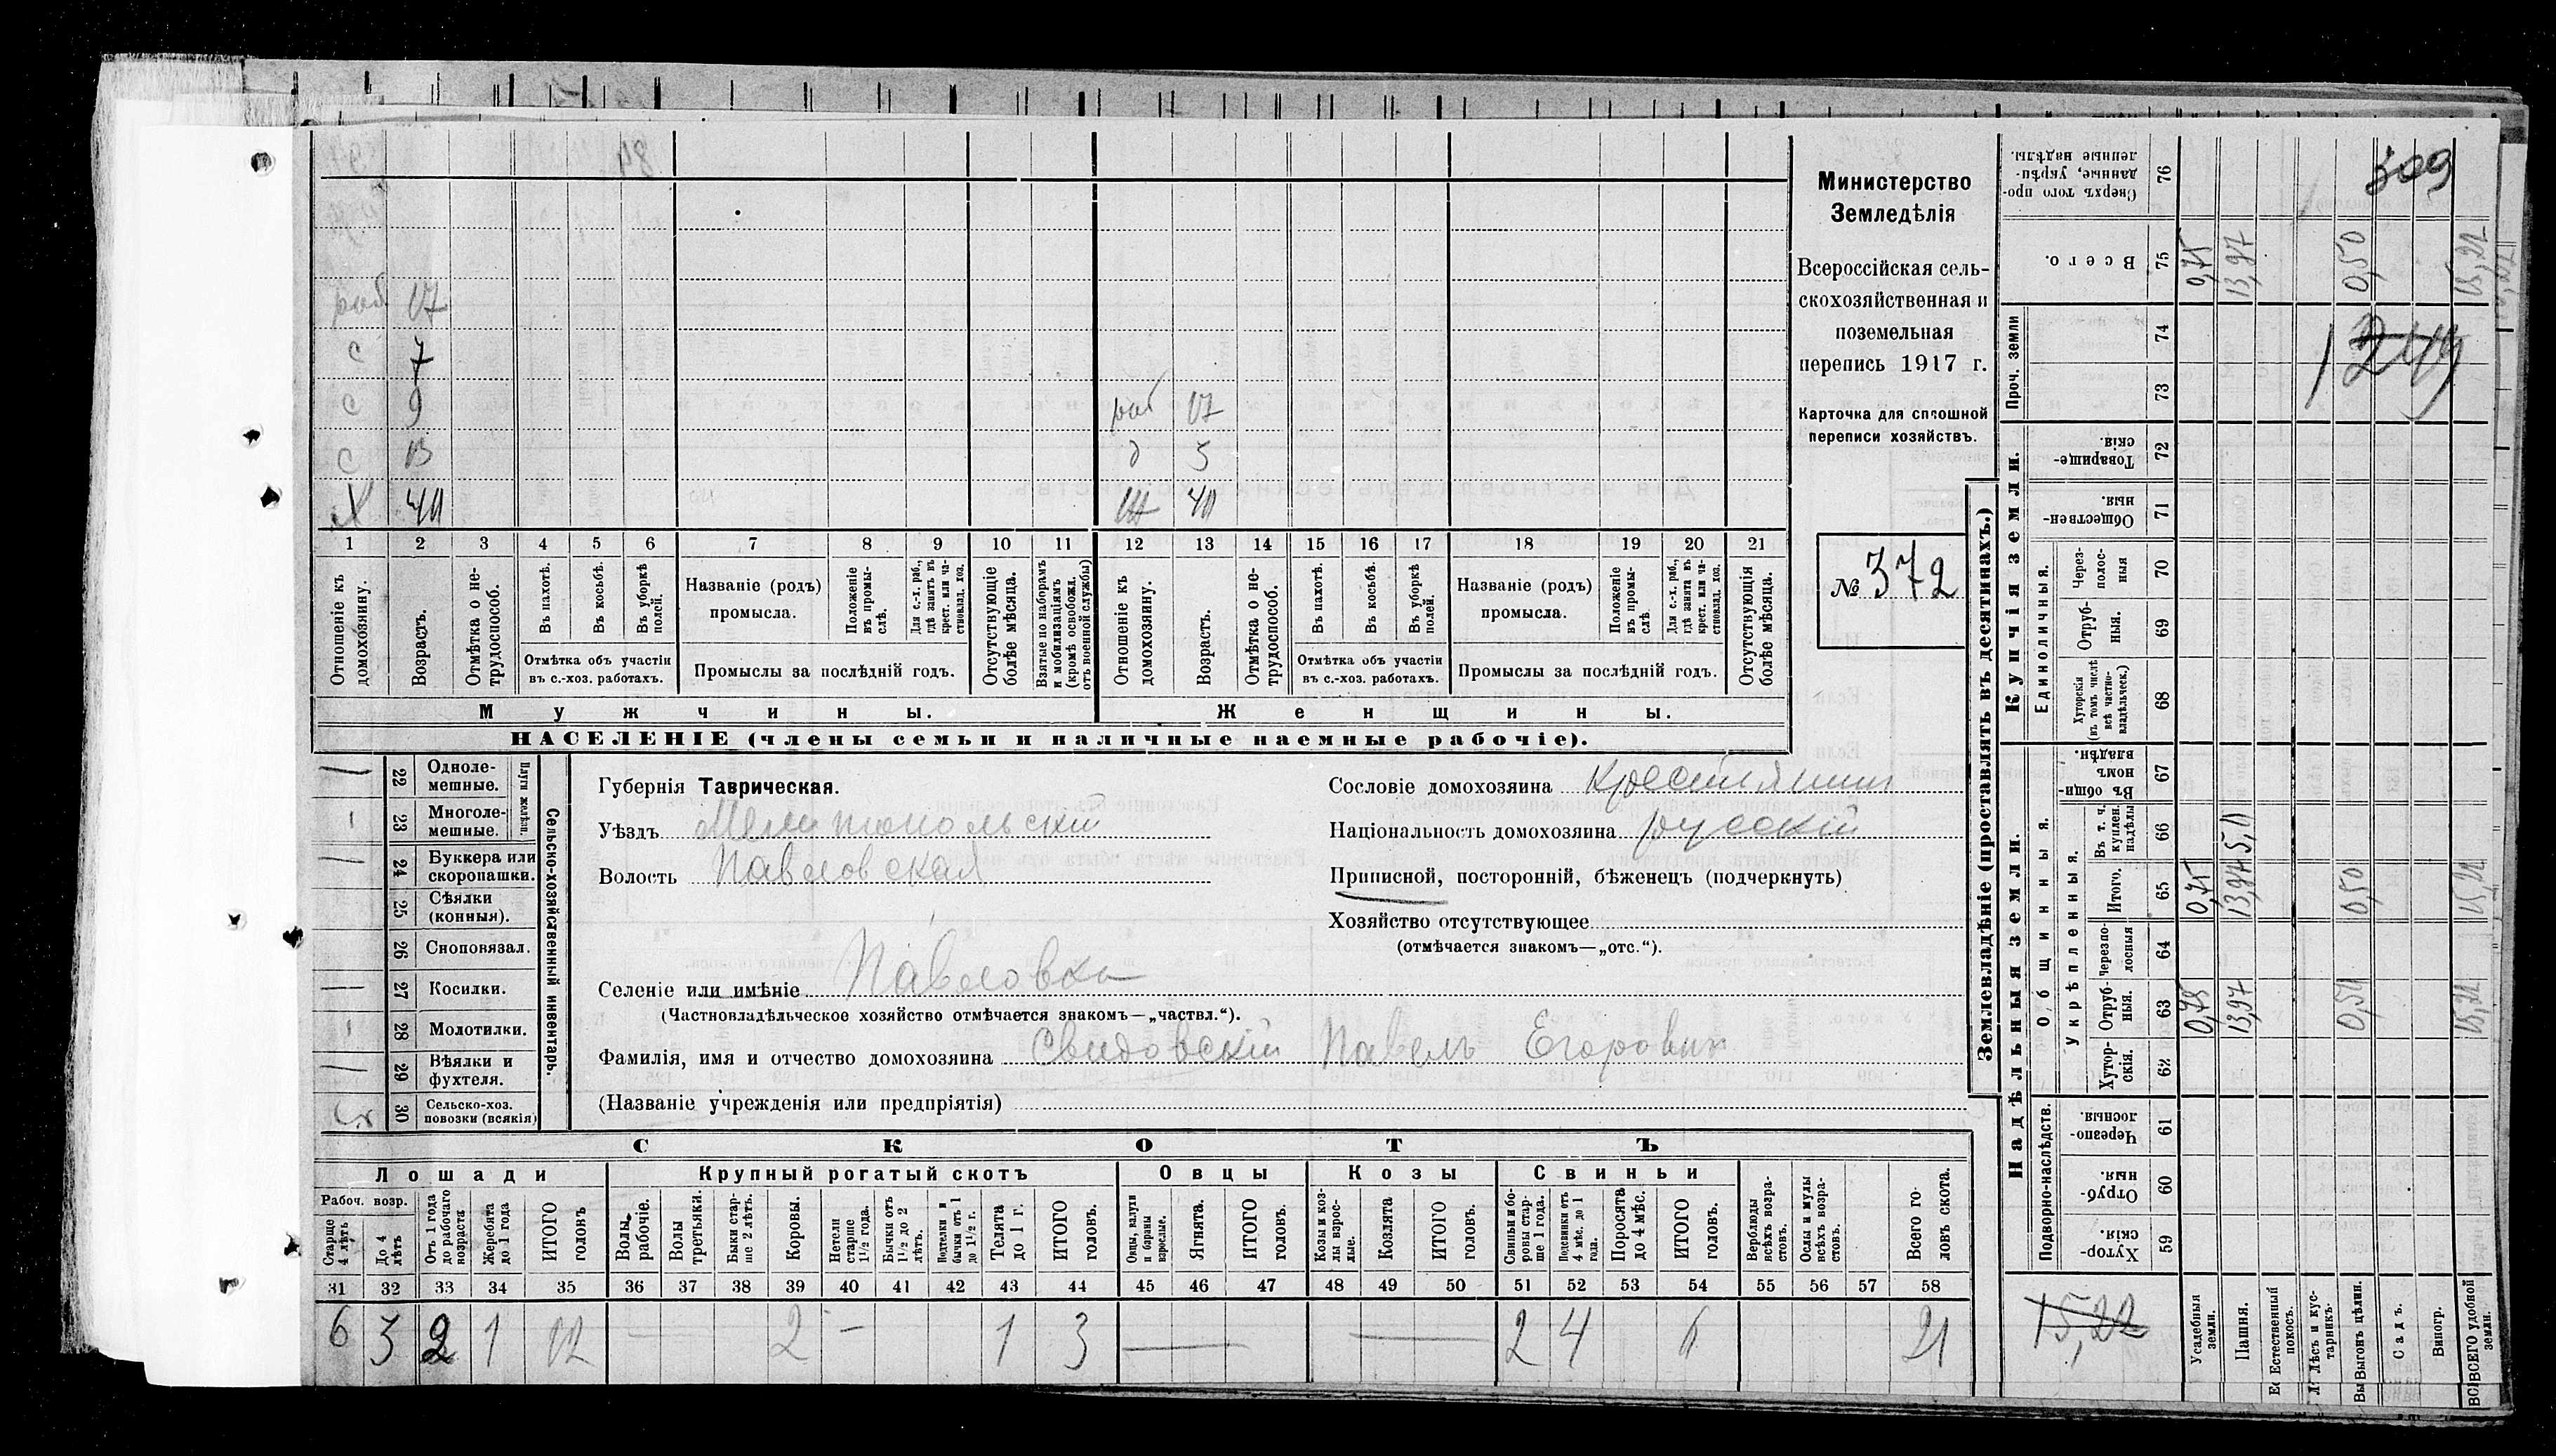 84
раб 17
с 7
с 9
с 13
Х 40
раб 17
д 5
ж 40
1 2 3 4 5 6 7 8 9 10 11 12 13 14 15 16 17 18 19 20 21
Отношеніе къ домохозяину.
Возрастъ.
Отмѣтка о не-трудоспособ.
Въ пахотѣ.
Въ косьбѣ.
Въ уборкѣ полей.
Отмѣтка объ участіи
въ с.-хоз. работахъ.
Названіе (родъ)
промысла.
Положеніе въ промы-слѣ.
Для с.-х. раб., гдѣ занятъ въ крест. или ча-стновлад. хоз.
Промыслы за послѣдній годъ.
Отсутствующіе болѣе мѣсяца.
Взятые по наборамъ и мобилизаціямъ (кромѣ освобожд. отъ военной службы)
Отношеніе къ домохозяину.
Возрастъ.
Отмѣтка о не-трудоспособ.
Въ пахотѣ.
Въ косьбѣ.
Въ уборкѣ полей.
Отмѣтка объ участіи
въ с.-хоз. работахъ.
Названіе (родъ)
промысла.
Положеніе въ промы-слѣ
Для с.-х. раб., гдѣ занята въ крест. или ча-стновлад. хоз.
Промыслы за послѣдній годъ.
Отсутствующія болѣе мѣсяца.
Мужчины.
Женщины.
НАСЕЛЕНІЕ (члены семьи и наличные наемные рабочіе).
Министерство
Земледѣлія
Всероссійская сель-
скохозяйственная и
поземельная
перепись 1917 г.
Карточка для сплошной
переписи хозяйствъ.
№ 372
22 Одноле-мешные.
23 Многоле-мешные.
Плуги желѣзн.
24 Буккера или скоропашки.
25 Сѣялки (конныя).
26 Сноповязал.
27 Косилки.
28 Молотилки.
29 Вѣялки и фухтеля.
30 Сельско-хоз. повозки (всякія)
Сельско-хозяйственный инвентарь.
Губернія Таврическая.
Уѣздъ Мелитопольскій
Волость Павловская
Сословіе домохозяина крестьянин
Національность домохозяина русскій
Приписной, посторонній, бѣженецъ (подчеркнуть)
Хозяйство отсутствующее
(отмѣчается знакомъ—„отс.“).
Селеніе или имѣніе Павловка
(Частновладѣльческое хозяйство отмѣчается знакомъ—„частвл.“).
Фамилія, имя и отчество домохозяина Свидовскій Павелъ Егорович
(Названіе учрежденія или предпріятія)
СКОТЪ
Лошади
Крупный рогатый скотъ
Овцы
Козы
Свиньи
Рабоч. возр.
Старше 4 лѣтъ
До 4 лѣтъ
Отъ 1 года до рабочаго возраста
Жеребята до 1 года
ИТОГО головъ
Волы рабочіе.
Волы третьяки.
Быки стар-ше 2 лѣтъ.
Коровы.
Нетели старше 1½ года.
Бычки отъ 1½ до 2 лѣтъ.
Подтелки и бычки отъ 1 до 1½ г.
Телята до 1 г.
ИТОГО головъ.
Овцы, валухи и бараны взрослые.
Ягнята.
ИТОГО головъ.
Козы и коз-лы взрос-лые.
Козлята
ИТОГО головъ.
Свиньи и бо-ровы стар-ше 1 года.
Подсвинки отъ 4 мѣс. до 1 года.
Поросята до 4 мѣс.
ИТОГО головъ.
Верблюды всѣхъ возра-стовъ.
Ослы и мулы всѣхъ возра-стовъ.
Всего го-ловъ скота.
31 32 33 34 35 36 37 38 39 40 41 42 43 44 45 46 47 48 49 50 51 52 53 54 55 56 57 58
6 3 2 1 12 — 2 — 1 3 — — 2 4 6 21
Землевладѣніе (проставлять въ десятинахъ.)
Сверхъ того про-данные, укрѣп-ленные надѣлы. 76
309
Всего. 75
0,75 13,97 0,50 15,22
Проч. земли 74 73
1249
Купчія земли.
Товарище-скія. 72
Обществен-ныя. 71
Единоличныя.
Через-полос-ныя 70
Отруб-ныя. 69
Хуторскія (въ томъ числѣ всѣ частно-владѣльческ.) 68
Надѣльныя земли.
Общинныя.
Въ общин-номъ владѣн. 67
Укрѣпленныя.
Въ т. ч. куплен. надѣлы 66
Итого. 65
0,75 0,50 15,22
Черезпо-лосныя 64
Отруб-ныя. 63
0,75 13,97 15,22
Хутор-скія. 62
Подворно-наслѣдств.
Черезпо-лосныя. 61
Отруб-ныя. 60
Хутор-скія. 59
15,22
Усадебныя земли.
Пашня.
Естественный покосъ.
Лѣсъ и кус-тарникъ.
Выгонъ цѣлин.
Садъ.
Виногр.
ВСЕГО удобной земли.